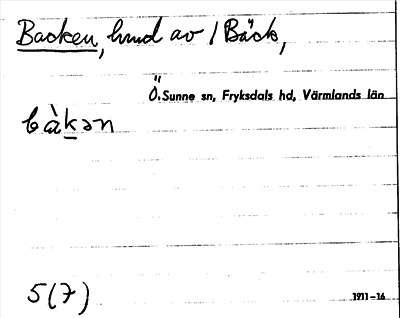 Backen, hund av / Bäck,
Ö. Sunne sn, Fryksdals hd, Värmlands län
bàkən
5(7)
1911-16